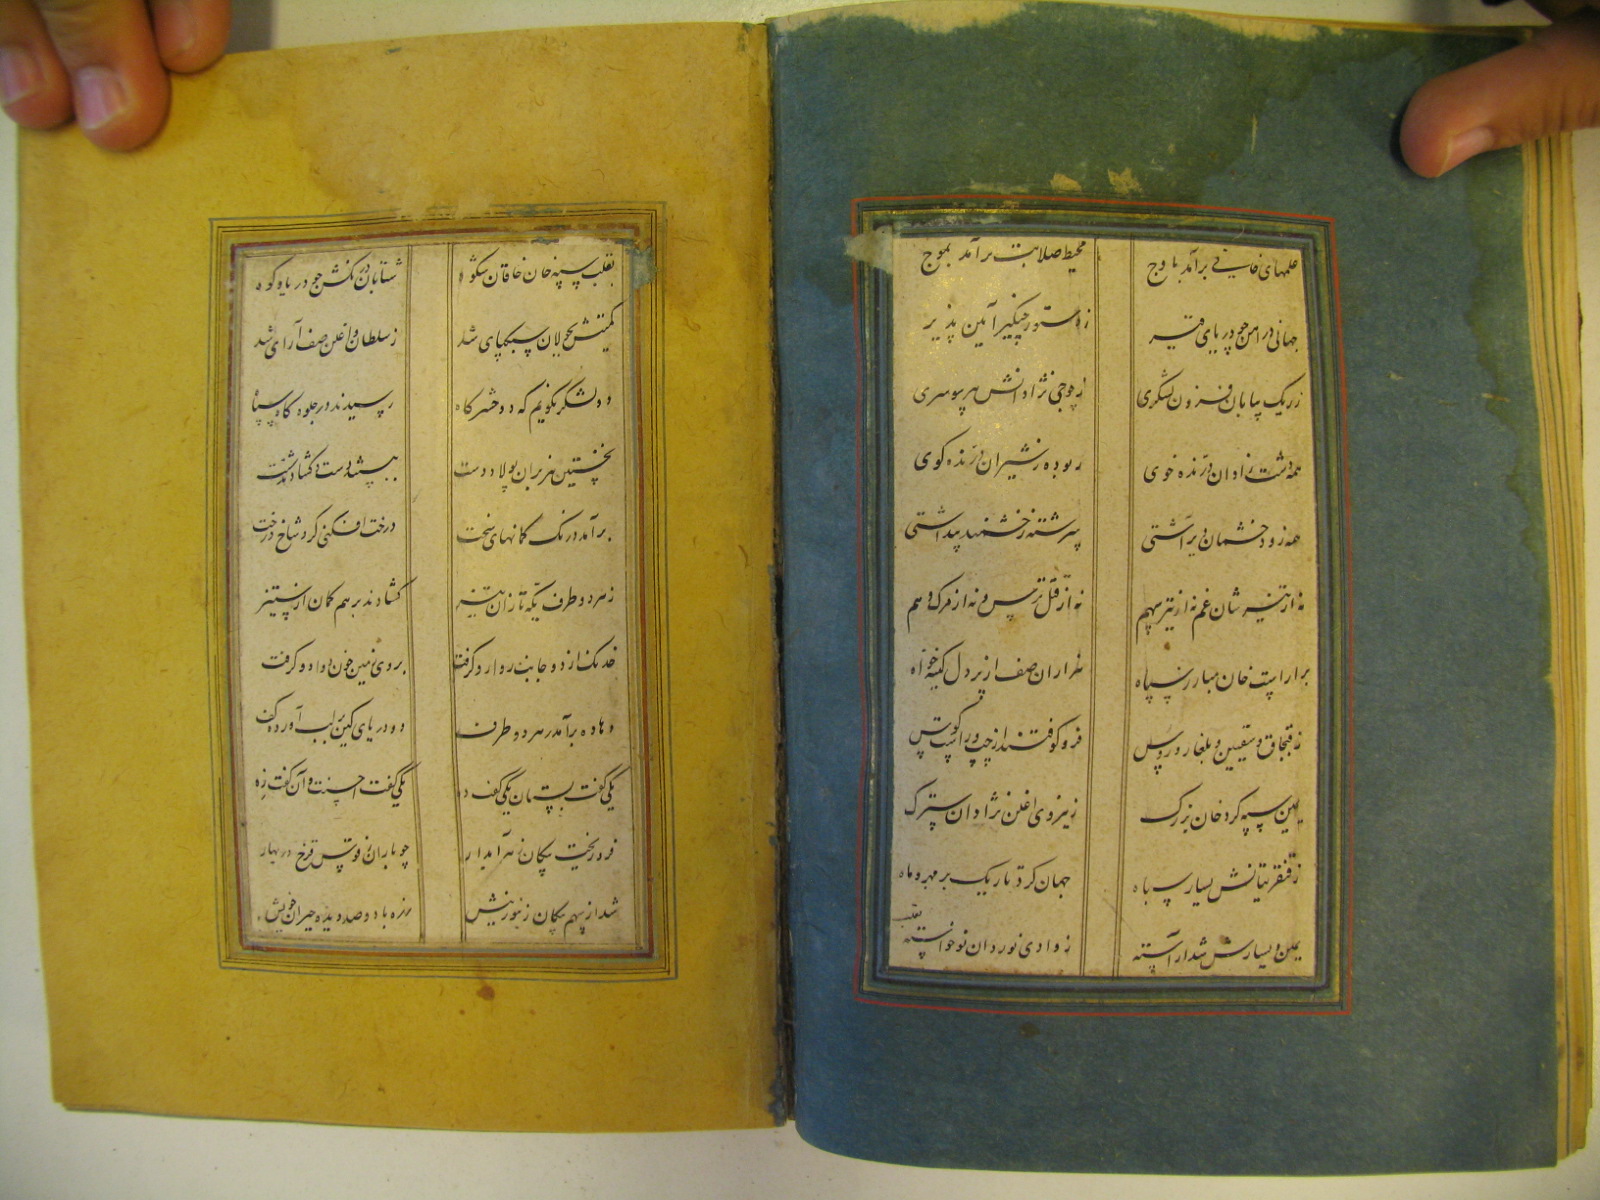 علمهای خانی برآمد باوج محیط صلابت برآمد بموج
جهانی در امن چو دریای قیر ز دستور چنگیز آیین پذیر
ز ریک بیابان فزون لشکری ز جوجی نژادانش هر سو سری
همه دشت زادان درنده خوی ربوده ز شیران درنده کوی
همه زود خشمان دیر آشتی سرشته ز خشمند پنداشتی
نه از نیزه شان غم نه از تیر سهم نه از قتل ترس و نه از مرک وهم
براراست خان مبارز سپاه هزاران صف از پردل کینه خواه
ز قبچاق و سقسین و بلغار و روس فرو کوفتند از چپ و راست کوس
یمین سپه کرد خان بزرک ز نیروی اغلن نژادان سترک
یسار سپاه جهان کرد تاریک بر مهر و ماه
یمین و یسارش شد آراسته ز وادی نوردان نوخواسته
بقلب
بقلب سپه خان خاقان شکوه شتابان در کنش چو دریا و کوه
کمیتش بجولان سبکپای شد ز سلطان و اغلن صف آرای شد
دو لشکر نکویم که دو حشرکاه رسیدند در جلوه کاه سپاه
نخستین هزبران پولاد دست ببستند دست کشادند شست
برآمد ترنک کمانهای سخت درخت افکنی کرد شاخ درخت
ز هر دو طرف یکه تازان تیز کشادند بر هم کمان از ستیز
خدنک از دو جانب روارو کرفت بروی زمین خون دوادو کرفت
دهاده برآمد ز هر دو طرف دو دریای کین بر لب آورده کف
یکی کفت بستان یکی کفت ده یکی کفت احسنت و آن کفت زه
فرو ریخت پیکان زهرآبدار چو باران ز قوس قزح در بهار
شد از سهم پیکان زنبور نیش زره با دو صد دیده حیران خویش